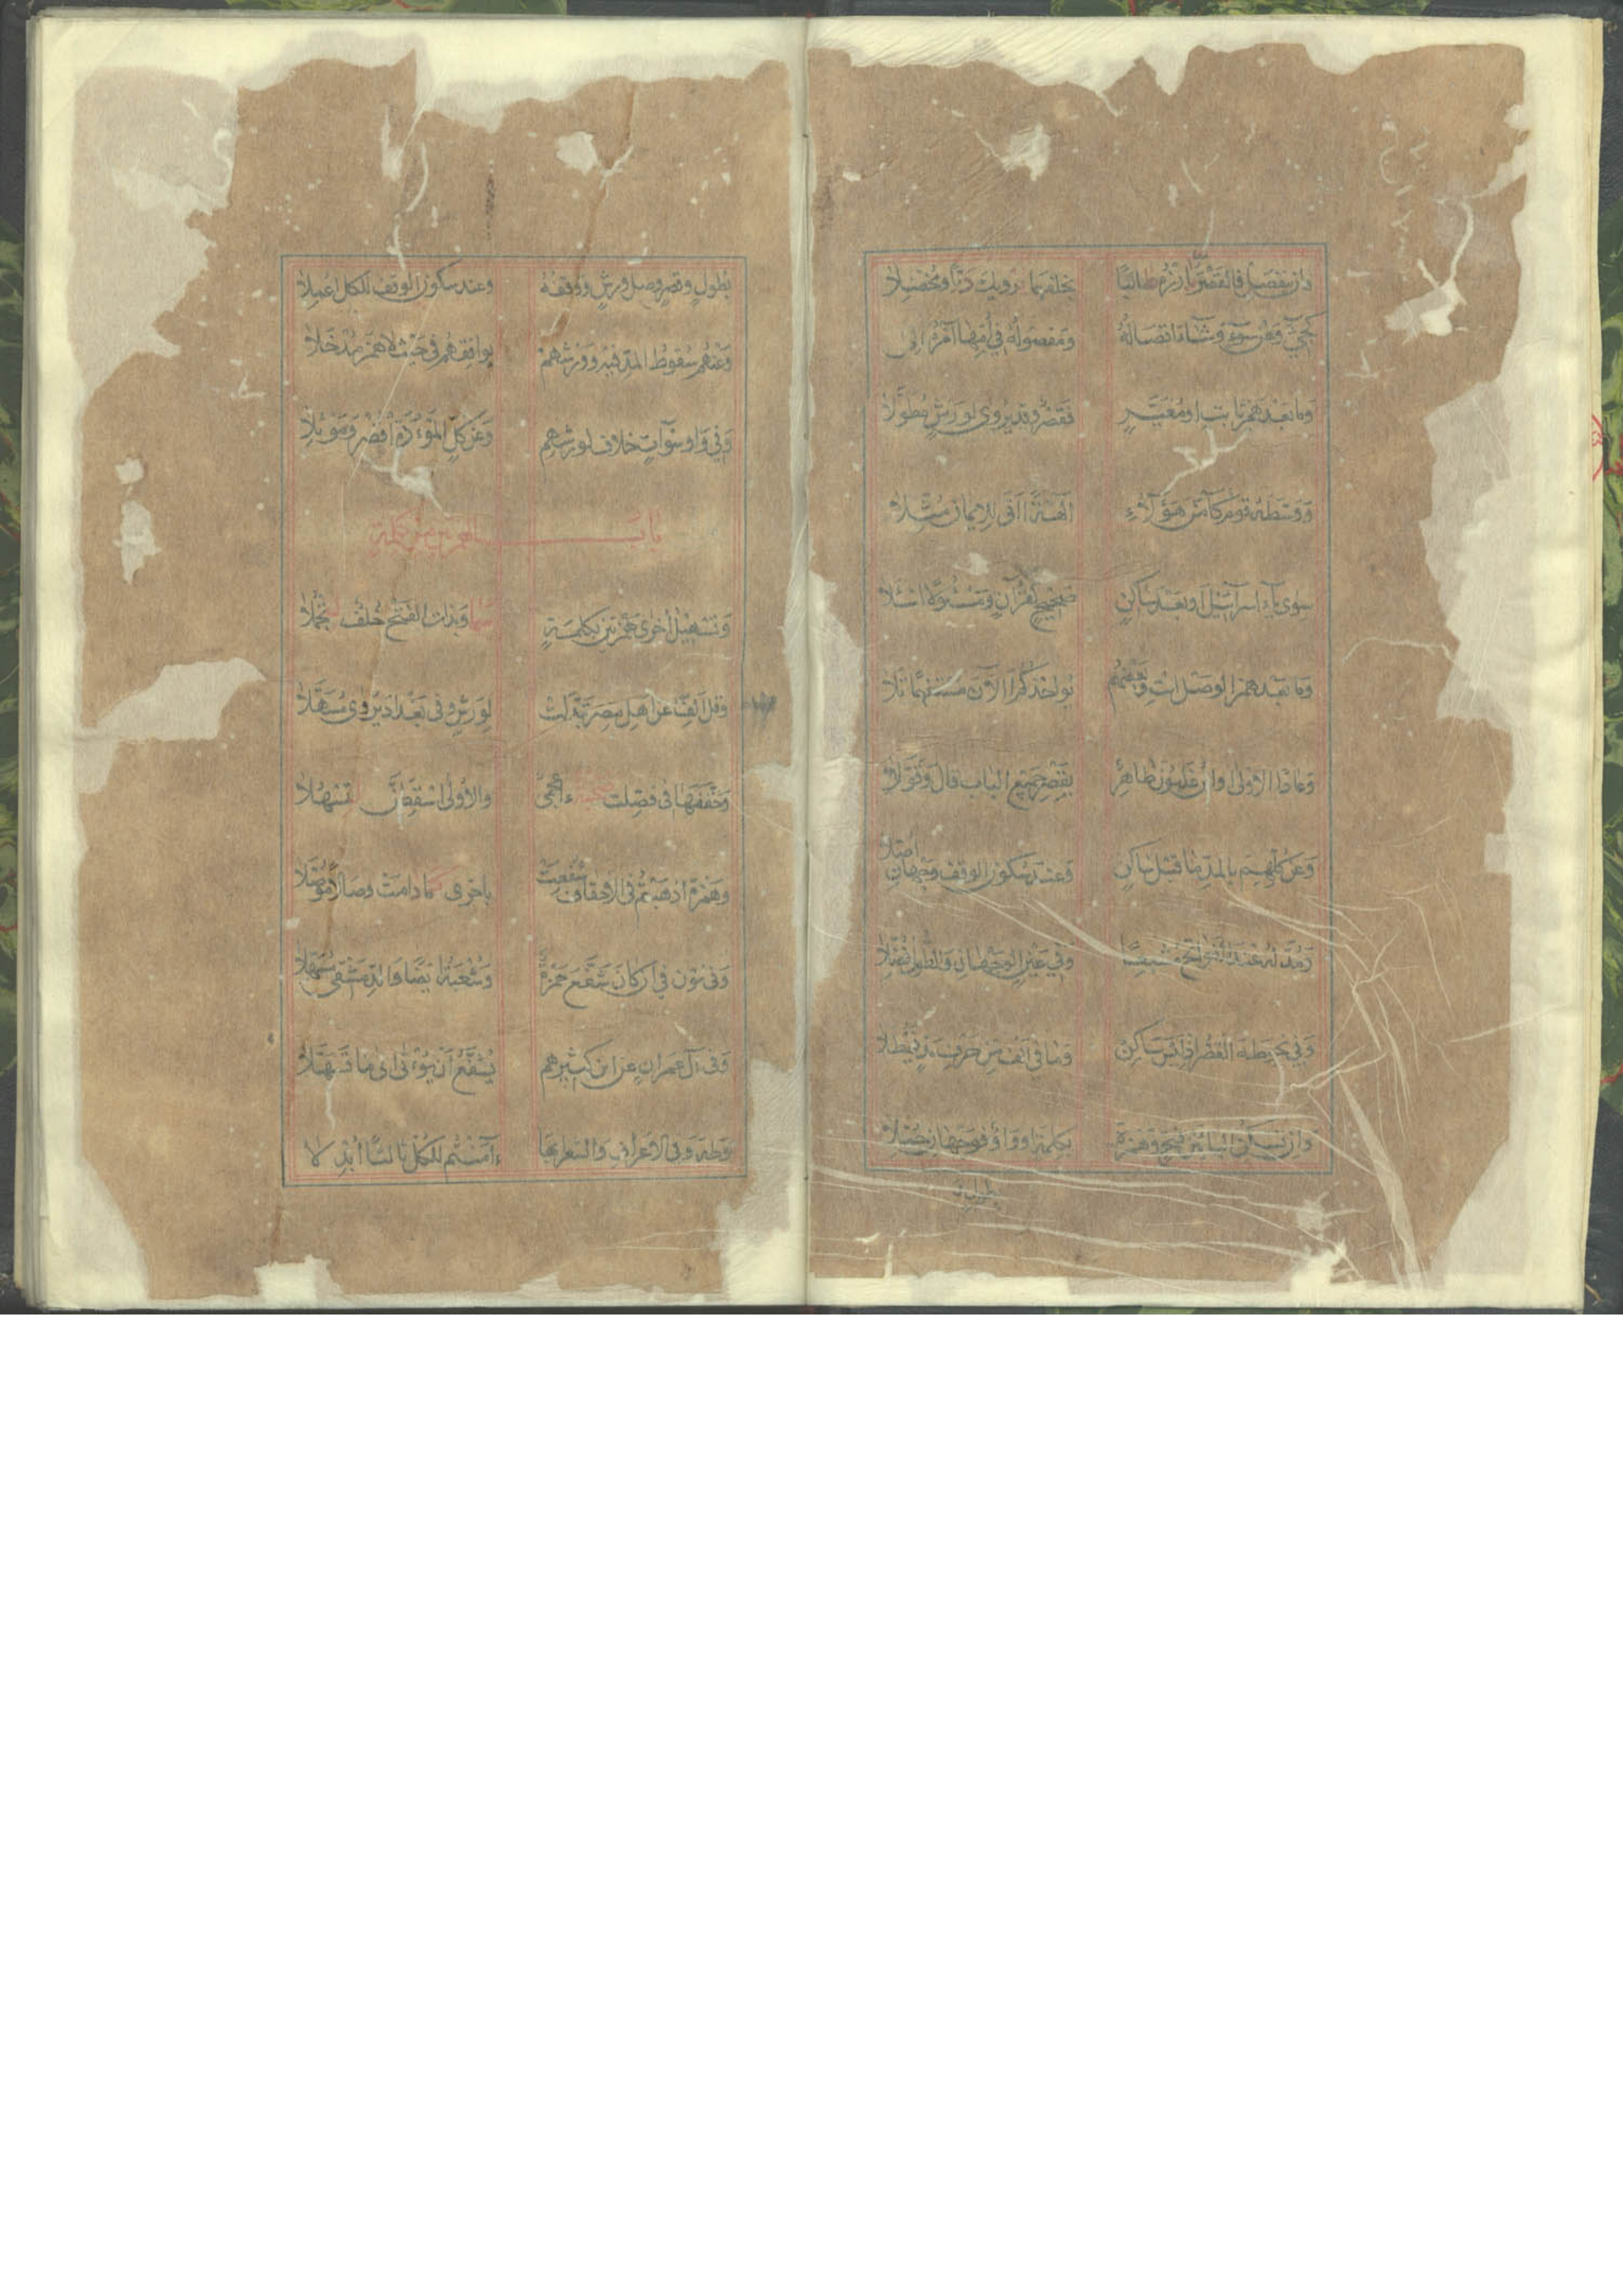 فان ينفصل فالقصر بادره طالبا بخلفهما يرويك درا ومخضلا
كجيء وعن سوء وشاء اتصاله ومفصوله في امها امره الى
وما بعد همز ثابت او مغير فقصر وقد يروى لورش مطولا
ووسطه قوم كآمن هؤلاء آلهة آتى للايمان مثلا
سوى ياء اسرآئيل او بعد ساكن صحيح كقرآن ومسئولا اسئلا
وما بعد همز الوصل ايت وبعضهم يؤاخذكم الآن مستفهما تلا
وعادا الاولى وابن غلبون طاهر بقصر جميع الباب قال وقولا
وعن كلهم بالمد ما قبل ساكن وعند سكون الوقف وجهان اصلا
ومد له عند الفواتح مشبعا وفي عين الوجهان والطول فضلا
وفي نحو طه القصر اذ ليس ساكن وما في الف من حرف مد فيمطلا
وان تسكن اليا بين فتح وهمزة بكلمة او واو فوجهان جملا
بطول
بطول وقصر وصل ورش ووقفه وعند سكون الوقف للكل اعملا
وعنهم سقوط المد فيه وورشهم يوافقهم في حيث لا همز مدخلا
وفي واو سوآت خلاف لورشهم وعن كل الموءودة اقصر وموئلا
باب الهمزتين من كلمة
وتسهيل اخرى همزتين بكلمة سما وبذات الفتح خلف لتجملا
وقل الفا عن اهل مصر تبدلت لورش وفي بغداد يروى مسهلا
وحققها في فصلت صحبة ءاعجمي والاولى اسقطن لتسهلا
وهمزة اذهبتم في الاحقاف شفعت باخرى كما دامت وصالا موصلا
وفي نون في ان كان شفع حمزة وشعبة ايضا والدمشقي مسهلا
وفي آل عمران عن ابن كثيرهم يشفع ان يؤتى الى ما تسهلا
وطه وفي الاعراف والشعرا بها ءآمنتم للكل ثالثا ابدلا